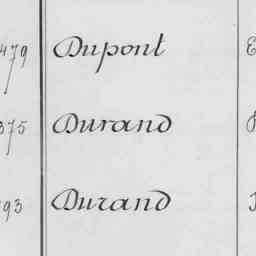 479 Dupont E
375 Durand
93 Durand